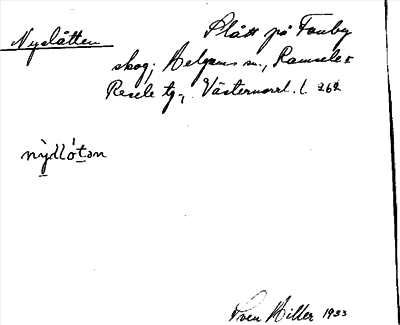 Nyslåtten Slått på Tanby
skog; Helgums sn., Ramsele o
Resele tg., Västernorrl. l. 262
nỳdlótən
Sven Hiller 1933